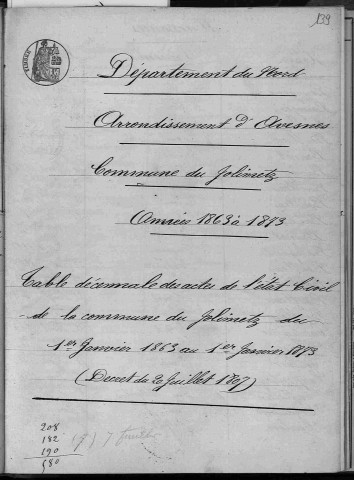 139
TIMBRE
Département du Nord
Arrondissement d'Avesnes
Commune du Jolimetz
Années 1863 à 1873
Table décennale des actes de l'état Civil
de la commune du Jolimetz du
1er Janvier 1863 au 1er Janvier 1873
(Decret du 20 Juillet 1807)
208
182
190
580